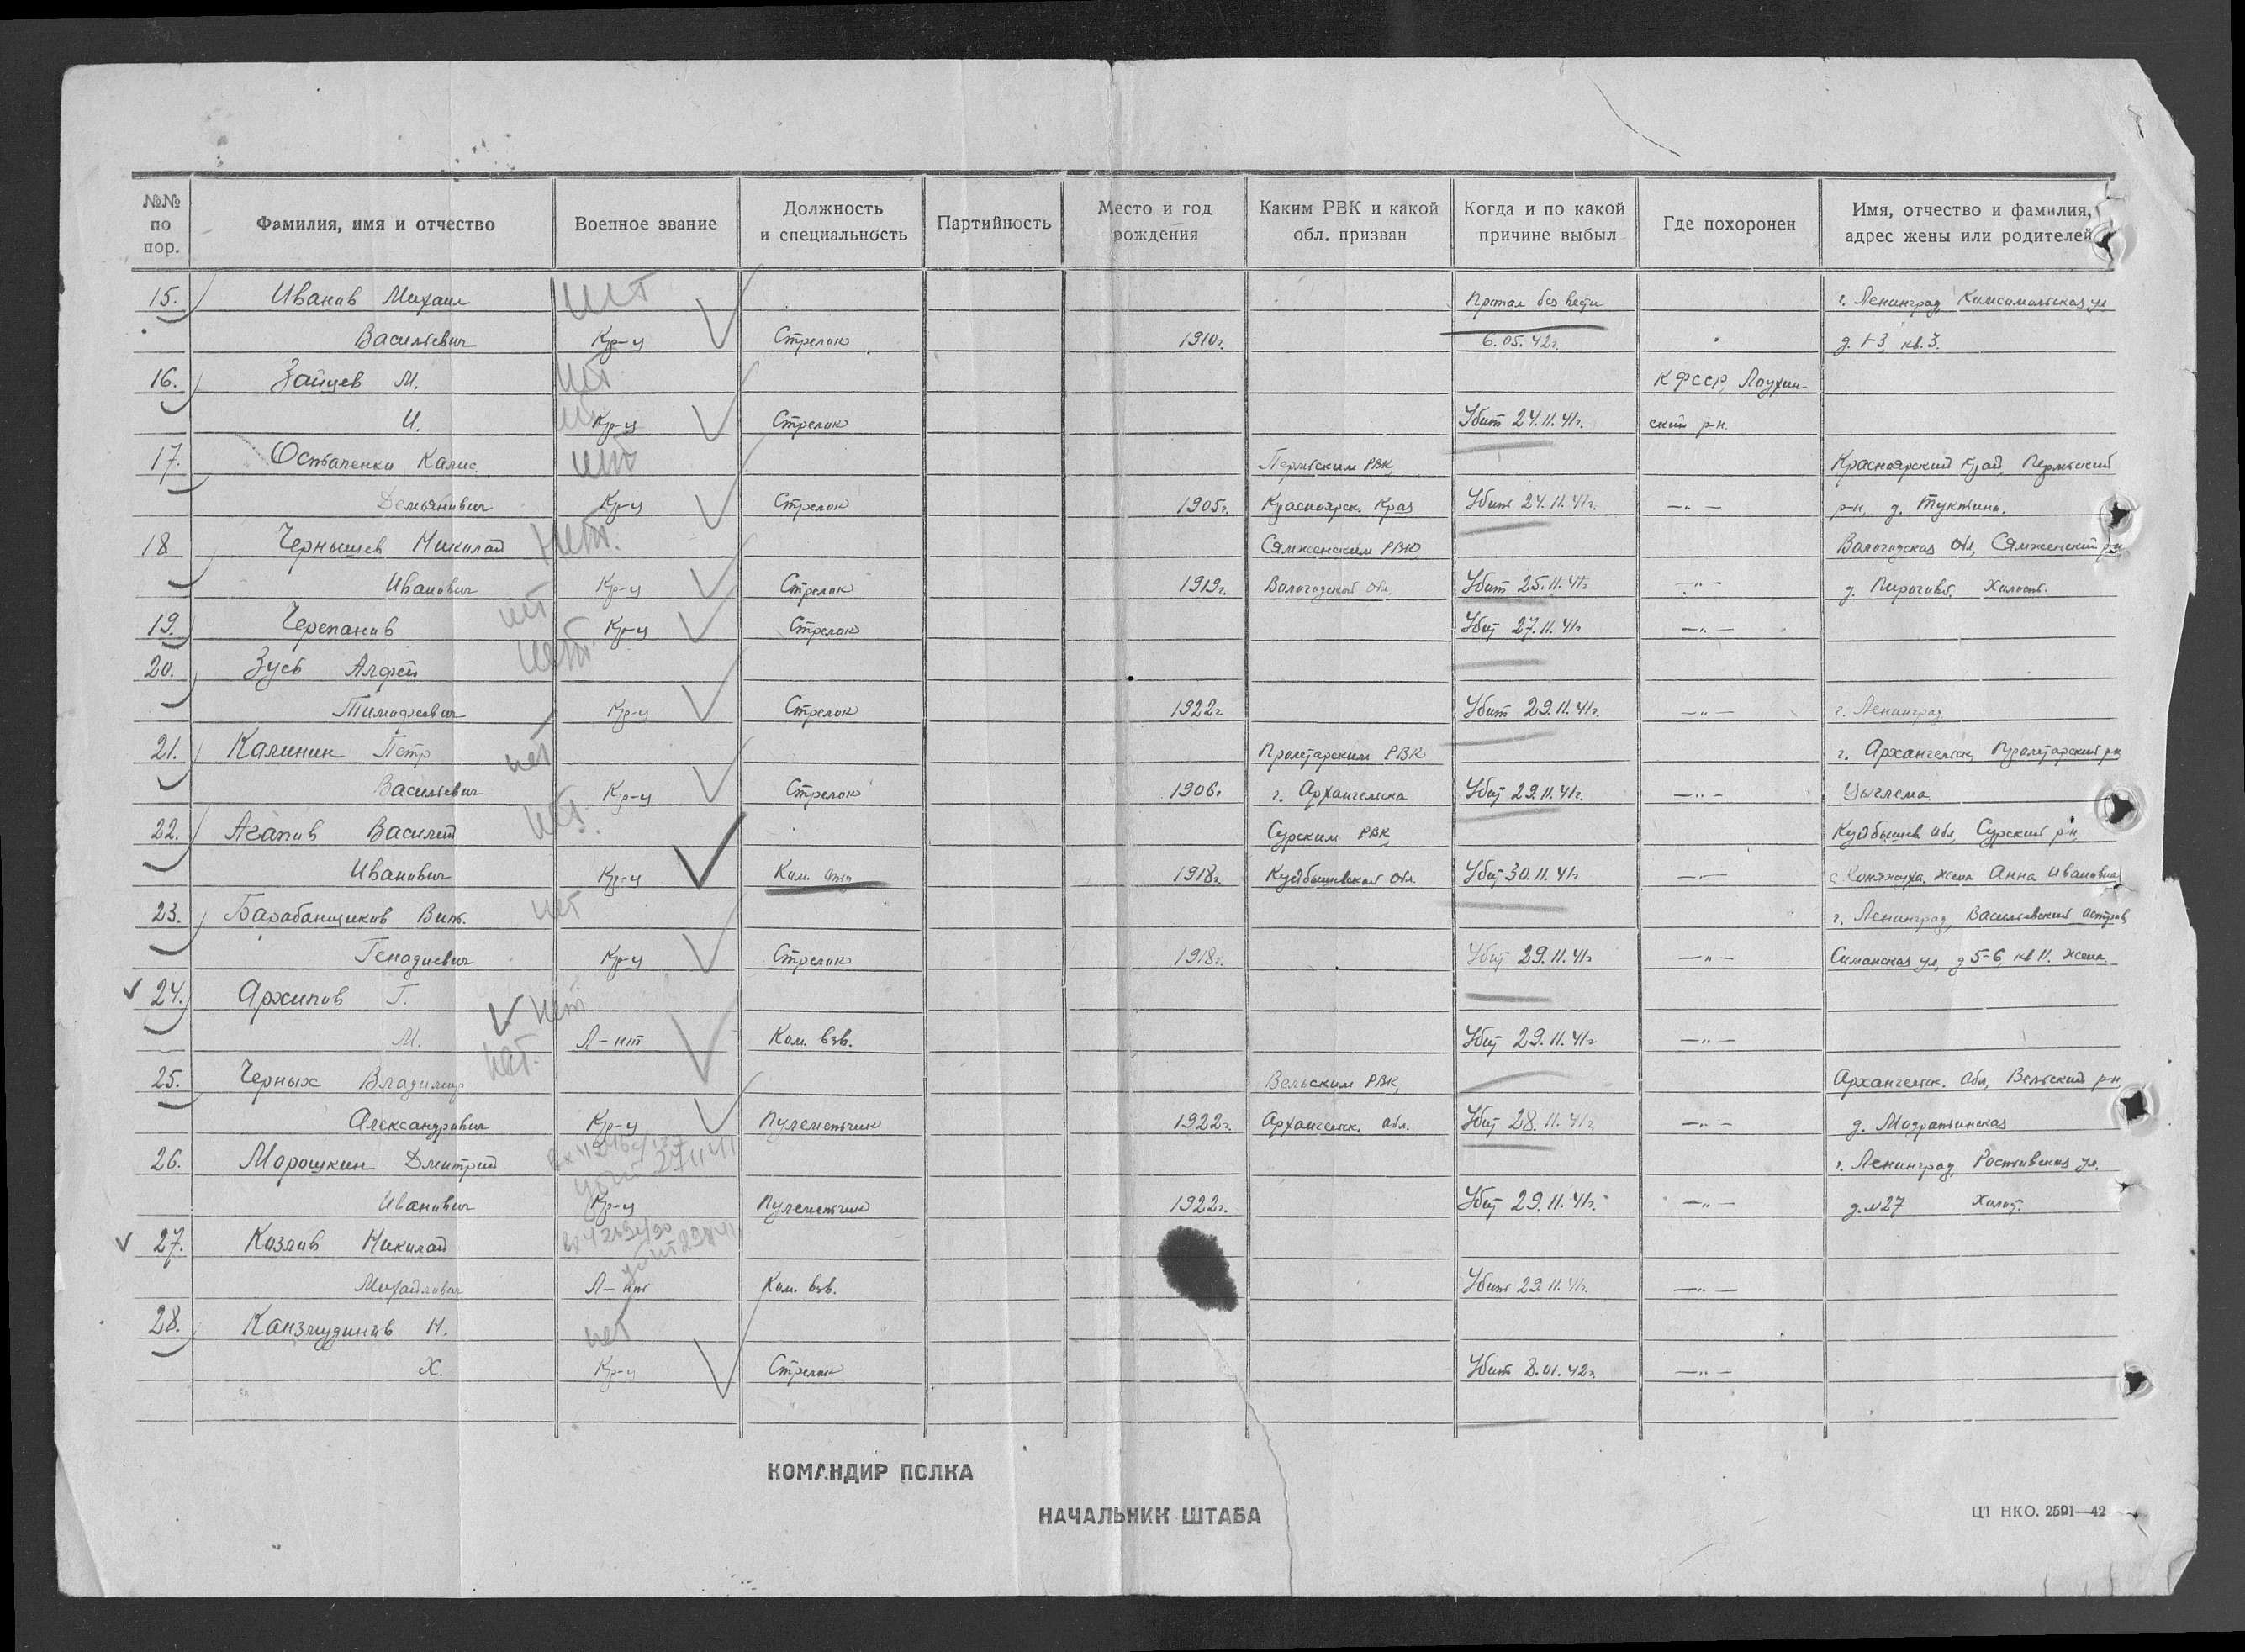 №№ по пор. Фамилия, имя и отчество Военное звание Должность и специальность Партийность Место и год рождения Каким РВК и какой обл. призван Когда и по какой причине выбыл Где похоронен Имя, отчество и фамилия, адрес жены или родителей
15. Иванов Михаил нет Пропал без вести г. Ленинград, Комсомольская ул,
Васильевич Кр-ц Стрелок 1910г. 6.05.42г. кв. 3.
16. Зайцев М. нет КФССР, Лоухин-
И. Кр-ц Стрелок Убит 24.11.41г. ский р-н.
17. Остапенко нет РВК, Красноярский край,
Демьянович Кр-ц Стрелок 1905г. Красноярск. Края Убит 24.11.41г. —"— р-н, д.
18 Чернышев Николай нет. Сямженским РВК Вологодская обл, Сямженский р-н
Иванович Кр-ц Стрелок 1919г. Вологодской обл. Убит 25.11.41г —"— д. Холост.
нет
19. Черепанов Кр-ц Стрелок Убит 27.11.41г —"—
20. Зуев нет.
Тимофеевич Кр-ц Стрелок 1922г Убит 29.11.41г. —"— г. Ленинград
21. Калинин Петр нет Пролетарским РВК г. Архангельск, Пролетарский р-н
Васильевич Кр-ц Стрелок 1906г г. Архангельска Убит 29.11.41г. —"—
22. Агапов Василий нет. Сурским РВК, Куйбышев обл, Сурский р-н,
Иванович Кр-ц Ком. отд 1918г. Куйбышевской обл. Убит 30.11.41г —"— жена Анна Ивановна
23. Барабанщиков Вит. нет г. Ленинград, Васильевский остров,
Генадиевич Кр-ц Стрелок 1918г. Убит 29.11.41г —"— ул, д 5-6, кв 11. жена
24. Архипов Г. нет
М. Л-нт Ком. взв. Убит 29.11.41г —"—
25. Черных Владимир нет. Вельским РВК, Архангельск. обл, Вельский р-н,
Александрович Кр-ц Пулеметчик 1922г. Архангельск. обл. Убит 28.11.41г. —"— д.
26. Морошкин Дмитрий г. Ленинград, Ростовская ул.
Иванович Кр-ц Пулеметчик 1922г. Убит 29.11.41г. —"— д. №27 Холост.
27. Козлов Николай
Михайлович Л-нт Ком. взв. Убит 29.11.41г. —"—
28. Н. нет
Х. Кр-ц Стрелок Убит 8.01.42г. —"—
КОМАНДИР ПОЛКА
НАЧАЛЬНИК ШТАБА
ЦТ НКО. 2591—42